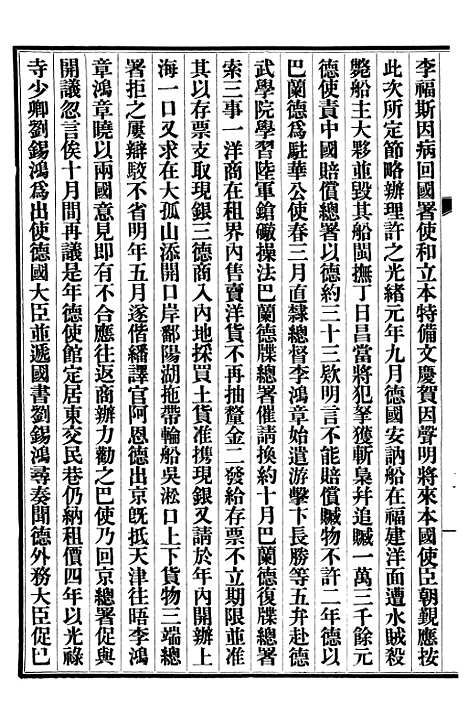 李福斯因病回國署使和立本特備文慶賀因聲明將來本國使臣朝覲應按
此次所定節略辦理許之光緒元年九月德國安訥船在福建洋面遭水賊殺
斃船主大夥並毀其船閩撫丁日昌當將犯拏獲斬梟幷追贓一萬三千餘元
德使責中國賠償總署以德約三十三欵明言不能賠償贓物不許二年德以
巴蘭德爲駐華公使春三月直隸總督李鴻章始遣游擊卞長勝等五弁赴德
武學院學習陸軍鎗礮操法巴蘭德牒總署催請換約十月巴蘭德復牒總署
索三事一洋商在租界內售賣洋貨不再抽釐金二發給存票不立期限並准
其以存票支取現銀三德商入內地採買土貨准携現銀又請於年內開辦上
海一口又求在大孤山添開口岸鄱陽湖拖帶輪船吳淞口上下貨物三端總
署拒之屢辯駁不省明年五月遂偕繙譯官阿恩德出京旣抵天津往晤李鴻
章鴻章曉以兩國意見卽有不合應往返商辦力勸之巴使乃回京總署促與
開議忽言俟十月間再議是年德使館定居東交民巷仍納租價四年以光祿
寺少卿劉錫鴻爲出使德國大臣並遞國書劉錫鴻尋奏聞德外務大臣促巴